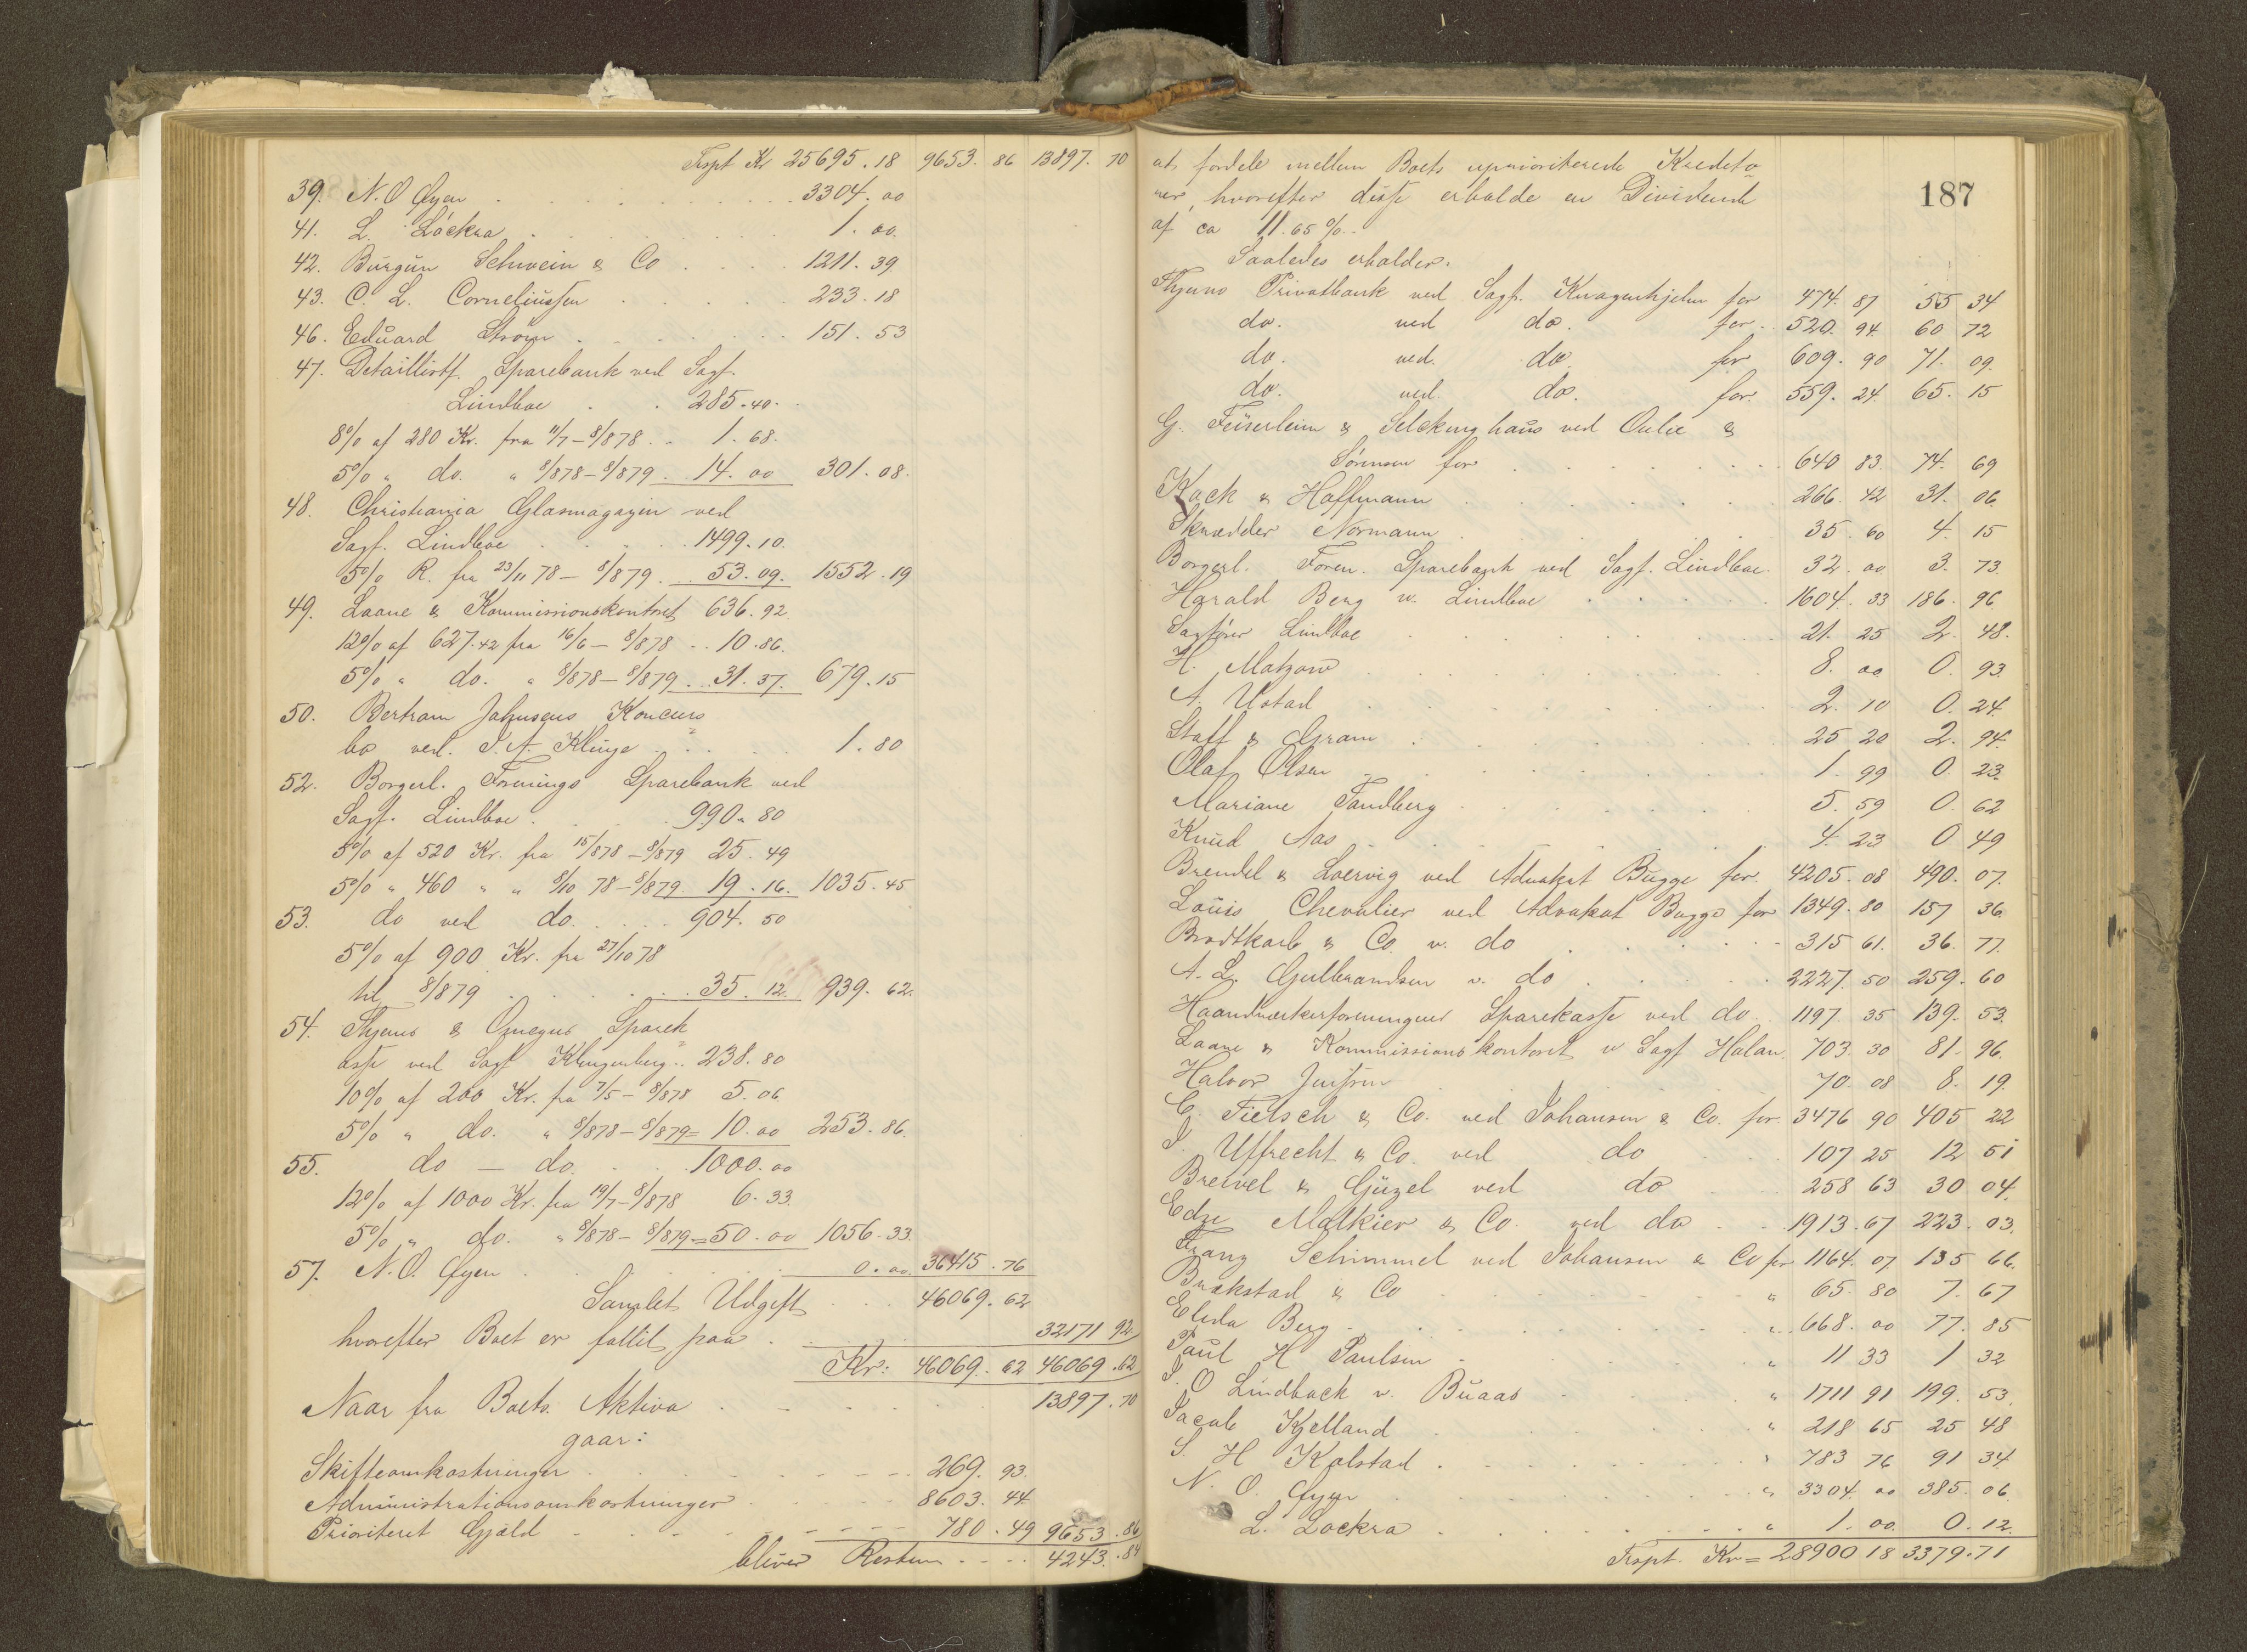 Trspt Kr 25695.18 9653.86 13897.70
39. N. O Øyen 3304.00
41. L. Löckra 1.00
42. Bürgün Schwein & Co 1211.39
43. C. L. Corneliussen 233.18
46. Eduard Strøm 151.53
47. Detaillistf. Sparebank ved Sagf.
Lindboe 285.40
8% af 280 Kr. fra 11/7–8/878 1.68
5% " do. " 8/878–8/879 14.00 301.08
48. Christiania Glasmagazin ved
Sagf. Lindboe 1499.10
5% R. fra 23/11 78–8/879 53.09 1552.19
49. Laane & Kommissionskontoret 636.92
12% af 627.42 fra 16/6–8/878 10.86
5% " do. " 8/878–8/879 31.37 679.15
50. Bertram Jahnsens Koncurs
bo ved. J. A. Klinge 1.80
52. Borgerl. Forenings Sparebank ved
Sagf. Lindboe 990.80
5% af 520 Kr. fra 15/878–8/879 25.49
5% " 460 " " 8/10 78–8/879 19.16 1035.45
53. do ved do. 904.50
5% af 900 Kr. fra 27/10 78
til 8/879 35.12 939.62
54. Thjems & Omegns Sparek
asse ved Sagf Klingenberg 238.80
10% af 200 Kr. fra 7/5–8/878 5.06
5% " do. " 8/878–8/879= 10.00 253.86
55. do — do. 1000.00
12% af 1000 Kr. fra 19/7–8/878 6.33
5% " do. " 8/878–8/879=50.00 1056.33
57. N. O. Øyen 0.00 36415.76
Samlet Udgift 46069.62
hvorefter Boet er fallit paa 32171 92
Kr: 46069.62 46069.62
Naar fra Boets Aktiva 13897.70
gaar:
Skifteomkostninger 269.93
Administrationsomkostninger 8603.44
Prioriteret Gjæld 780.49 9653.86
bliver Resten 4243.84
187
at fordele mellem Boets uprioriterede Kredito
rer, hvorefter disse erholde en Dividende
af ca 11.65%.
Saaledes erholder.
Thjems Privatbank ved Sagf. Knagenhjelm for 474.87 55 34
do. ved do. for 520.94 60 72
do. ved. do. for 609.90 71.09
do. ved do. for 559.24 65.15
G. Feüserleim & Selckinghaus ved Oulie &
Sørensen for 640 83 74.69
Kock & Hoffmann 266.42 31.06
Skrædder Normann 35.60 4.15
Borgerl. Foren. Sparebank ved Sagf. Lindboe 32.00 3.73
Harald Berg v. Lindboe 1604.33 186.96
Sagfører Lindboe 21.25 2.48
H. Matzow 8.00 0.93
A. Ustad 2.10 0.24
Staff & Gram 25 20 2.94
Olaf Olsen 1.99 0.23
Mariane Tandberg 5.59 0.62
Knud Aas 4.23 0 49
Brendel & Loervig ved Advokat Bugge for 4205.08 490.07
Louis Chevalier ved Advokat Bugge for 1349.80 157 36
Brodtkorb & Co. v. do 315 61 36.77
A. L. Gulbrandsen v. do 2227.50 259.60
Haandværkerforeningens Sparekasse ved do 1197.35 139.53
Laane & Kommissionskontoret v Sagf Halan 703.30 81.96
Halvor Jenssen 70.08 8.19
C. Tietsch & Co. ved Johansen & Co. for 3476 90 405 22
S. Uffrecht & Co. ved do 107 25 12 51
Breivel & Güzel ved do 258 63 30 04
Edze Malkier & Co. ved do 1913.67 223.03
Franz Schimmel ved Johansen & Co for 1164.07 135 66
Brækstad & Co " 65.80 7.67
Elida Berg " 668.00 77.85
Paul H Paulsen " 11 33 1 32
J. O Lindback v. Buaas " 1711 91 199.53
Jacob Kjelland " 218 65 25 48
S. H Kolstad " 783 76 91 34
N. O. Øyen " 3304.00 385.06
L. Lockra " 1.00 0.12
Trspt. Kr = 28900 18 3379.71